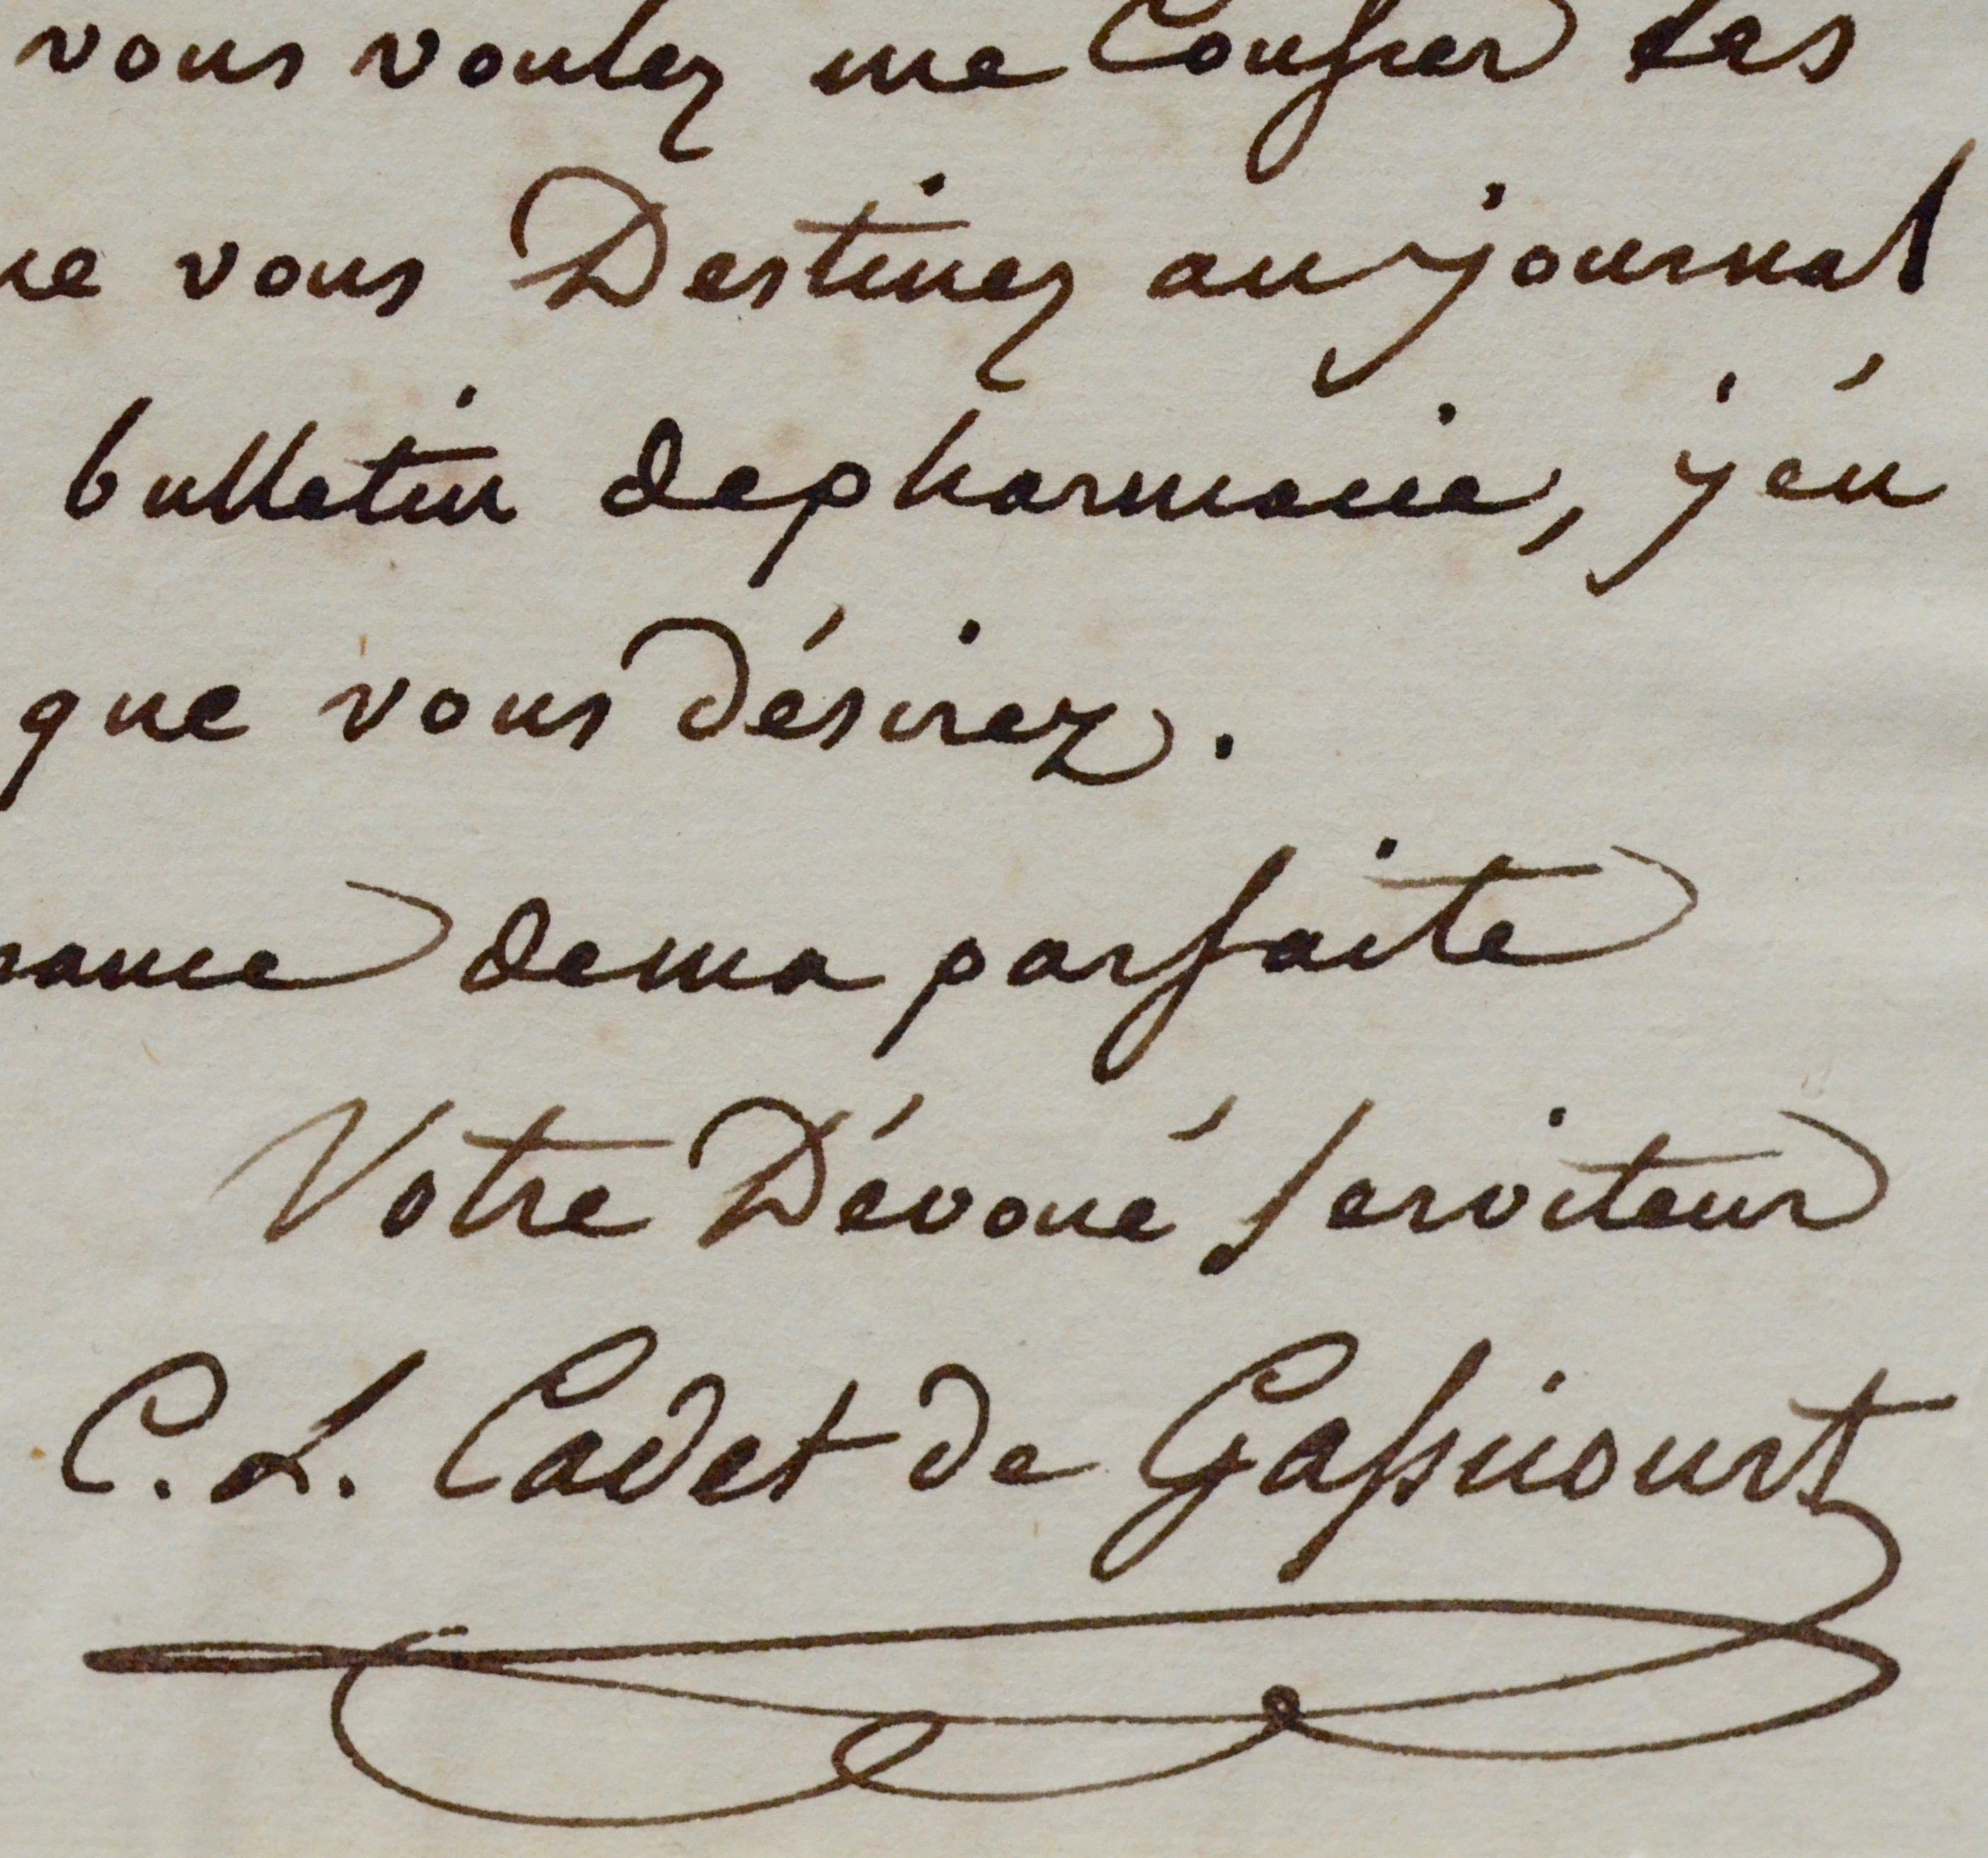 vous voulez me Confier les
ue vous Destinez au journal
bulletin de pharmacie, j'en
que vous désirez.
rance de ma parfaite
Votre Dévoué serviteur
C. L. Cadet de Gassicourt